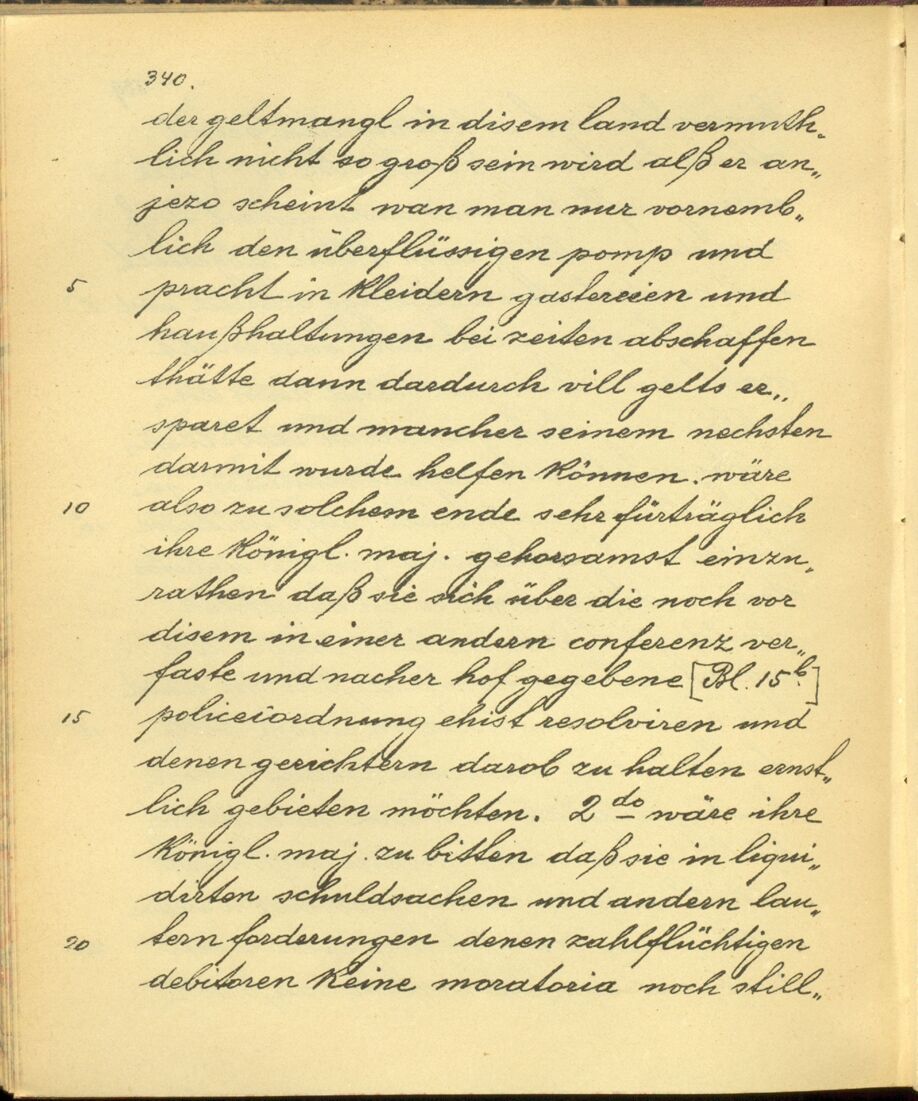 340.
der geltmangl in disem land vermuth„
lich nicht so groß sein wird alß er an„
jezo scheint wan man nur vornemb„
lich den überflüssigen pomp und
5 pracht in kleidern gastereien und
haußhaltungen bei zeiten abschaffen
thätte dann dardurch vill gelts er„
sparet und mancher seinem nechsten
darmit wurde helfen können. wäre
10 also zu solchem ende sehr fürträglich
ihre königl. maj. gehorsamst einzu„
rathen daß sie sich über die noch vor
disem in einer andern conferenz ver„
faste und nacher hof gegebene [Bl. 15b.]
15 policeiordnung ehist resolviren und
denen gerichtern darob zu halten ernst„
lich gebieten möchten. 2do wäre ihre
königl. maj. zu bitten daß sie in liqui„
dirten schuldsachen und andern lau„
20 tern forderungen denen zahlflüchtigen
debitoren keine moratoria noch still„